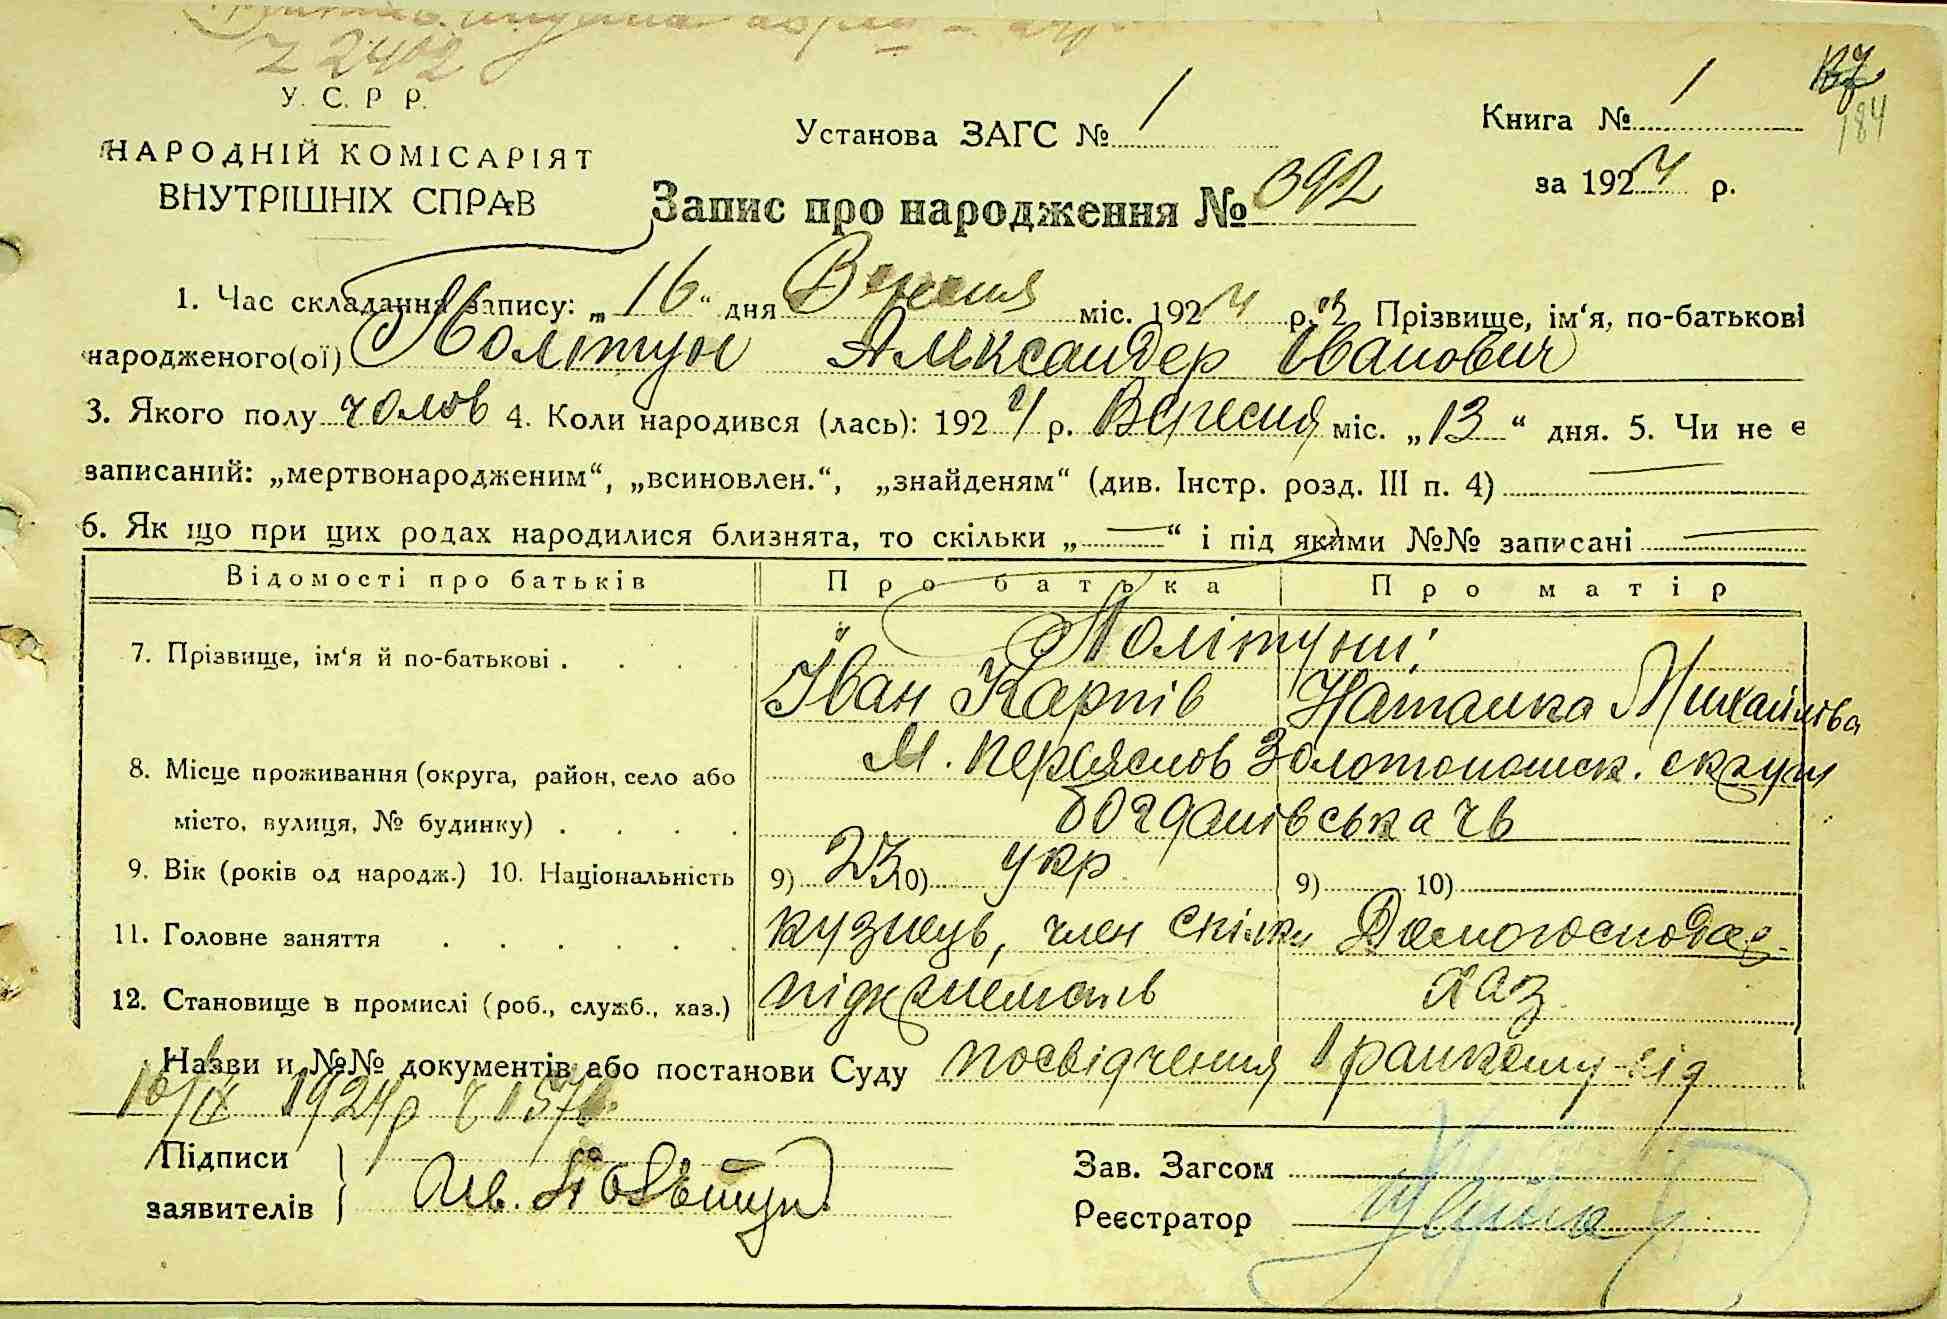 2402
У. С. Р Р.
НАРОДНІЙ КОМІСАРІЯТ
ВНУТРІШНІХ СПРАВ
Установа ЗАГС № 1
Книга № 1
184
за 1924 р.
Запис про народження № 392
1. Час складання запису: „16“ дня Вересня міс. 1924 р. 2. Прізвище, ім'я, по-батькові
народженого(ої) Політун Александер Іванович
3. Якого полу чолов 4. Коли народився (лась): 1924 р. Вересня міс. „13“ дня. 5. Чи не є
записаний: „мертвонародженим“, „всиновлен.“, „знайденям“ (див. Інстр. розд. III п. 4) —
6. Як що при цих родах народилися близнята, то скільки „—“ і під якими №№ записані —
Відомості про батьків Про батька Про матір
7. Прізвище, ім'я й по-батькові . . . . Політуни:
Іван Карпів Наталка Михайлова
8. Місце проживання (округа, район, село або М. Переяслов Золотоношск. округи
місто, вулиця, № будинку) . . . . Богданівська ч
9. Вік (років од народж.) 10. Національність 9) 23 10) укр 9) 10)
11. Головне заняття . . . . . . кузнець, член спілки Домогосподар
12. Становище в промислі (роб., служб., хаз.) хаз
Назви и №№ документів або постанови Суду посвідчення від
16/IX 1924 р ч 157
Підписи
заявителів Ив. Полѣтун
Зав. Загсом
Реєстратор